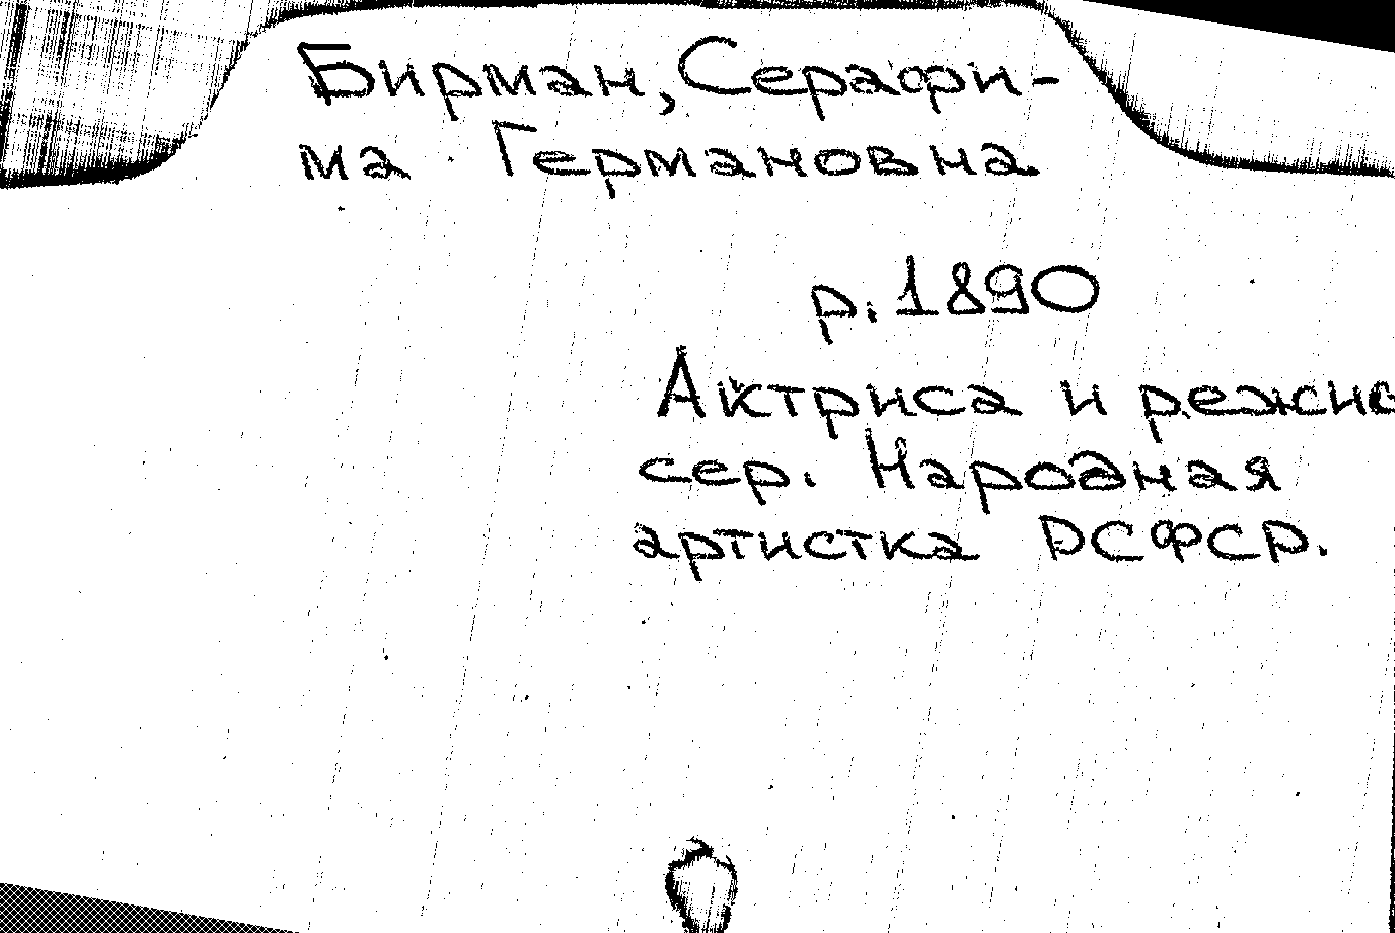 Бирман, Серафи-
ма Германовна.
р. 1890
Актриса и режис
сер. Народная
артистка РСФСР.